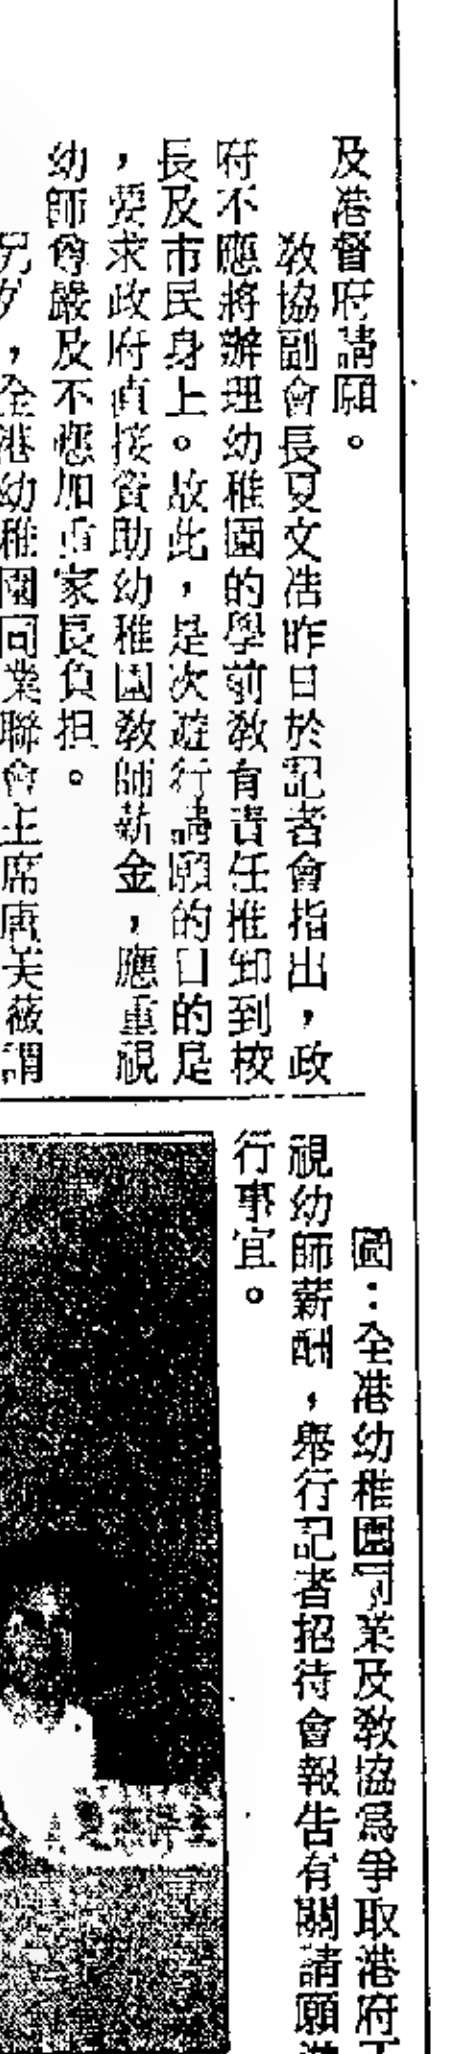 及港督府請願。
教協副會長夏文浩昨日於記者會指出，政
府不應將辦理幼稚園的學前教育責任推卸到校
長及市民身上。故此，是次遊行請願的目的是
，要求政府直接資助幼稚園教師薪金，應重視
幼師尊嚴及不應加重家長負担。
另外，全港幼稚園同業聯會主席唐美薇謂
圖：全港幼稚園同業及教協爲爭取港府
視幼師薪酬，舉行記者招待會報告有關請願
行事宜。